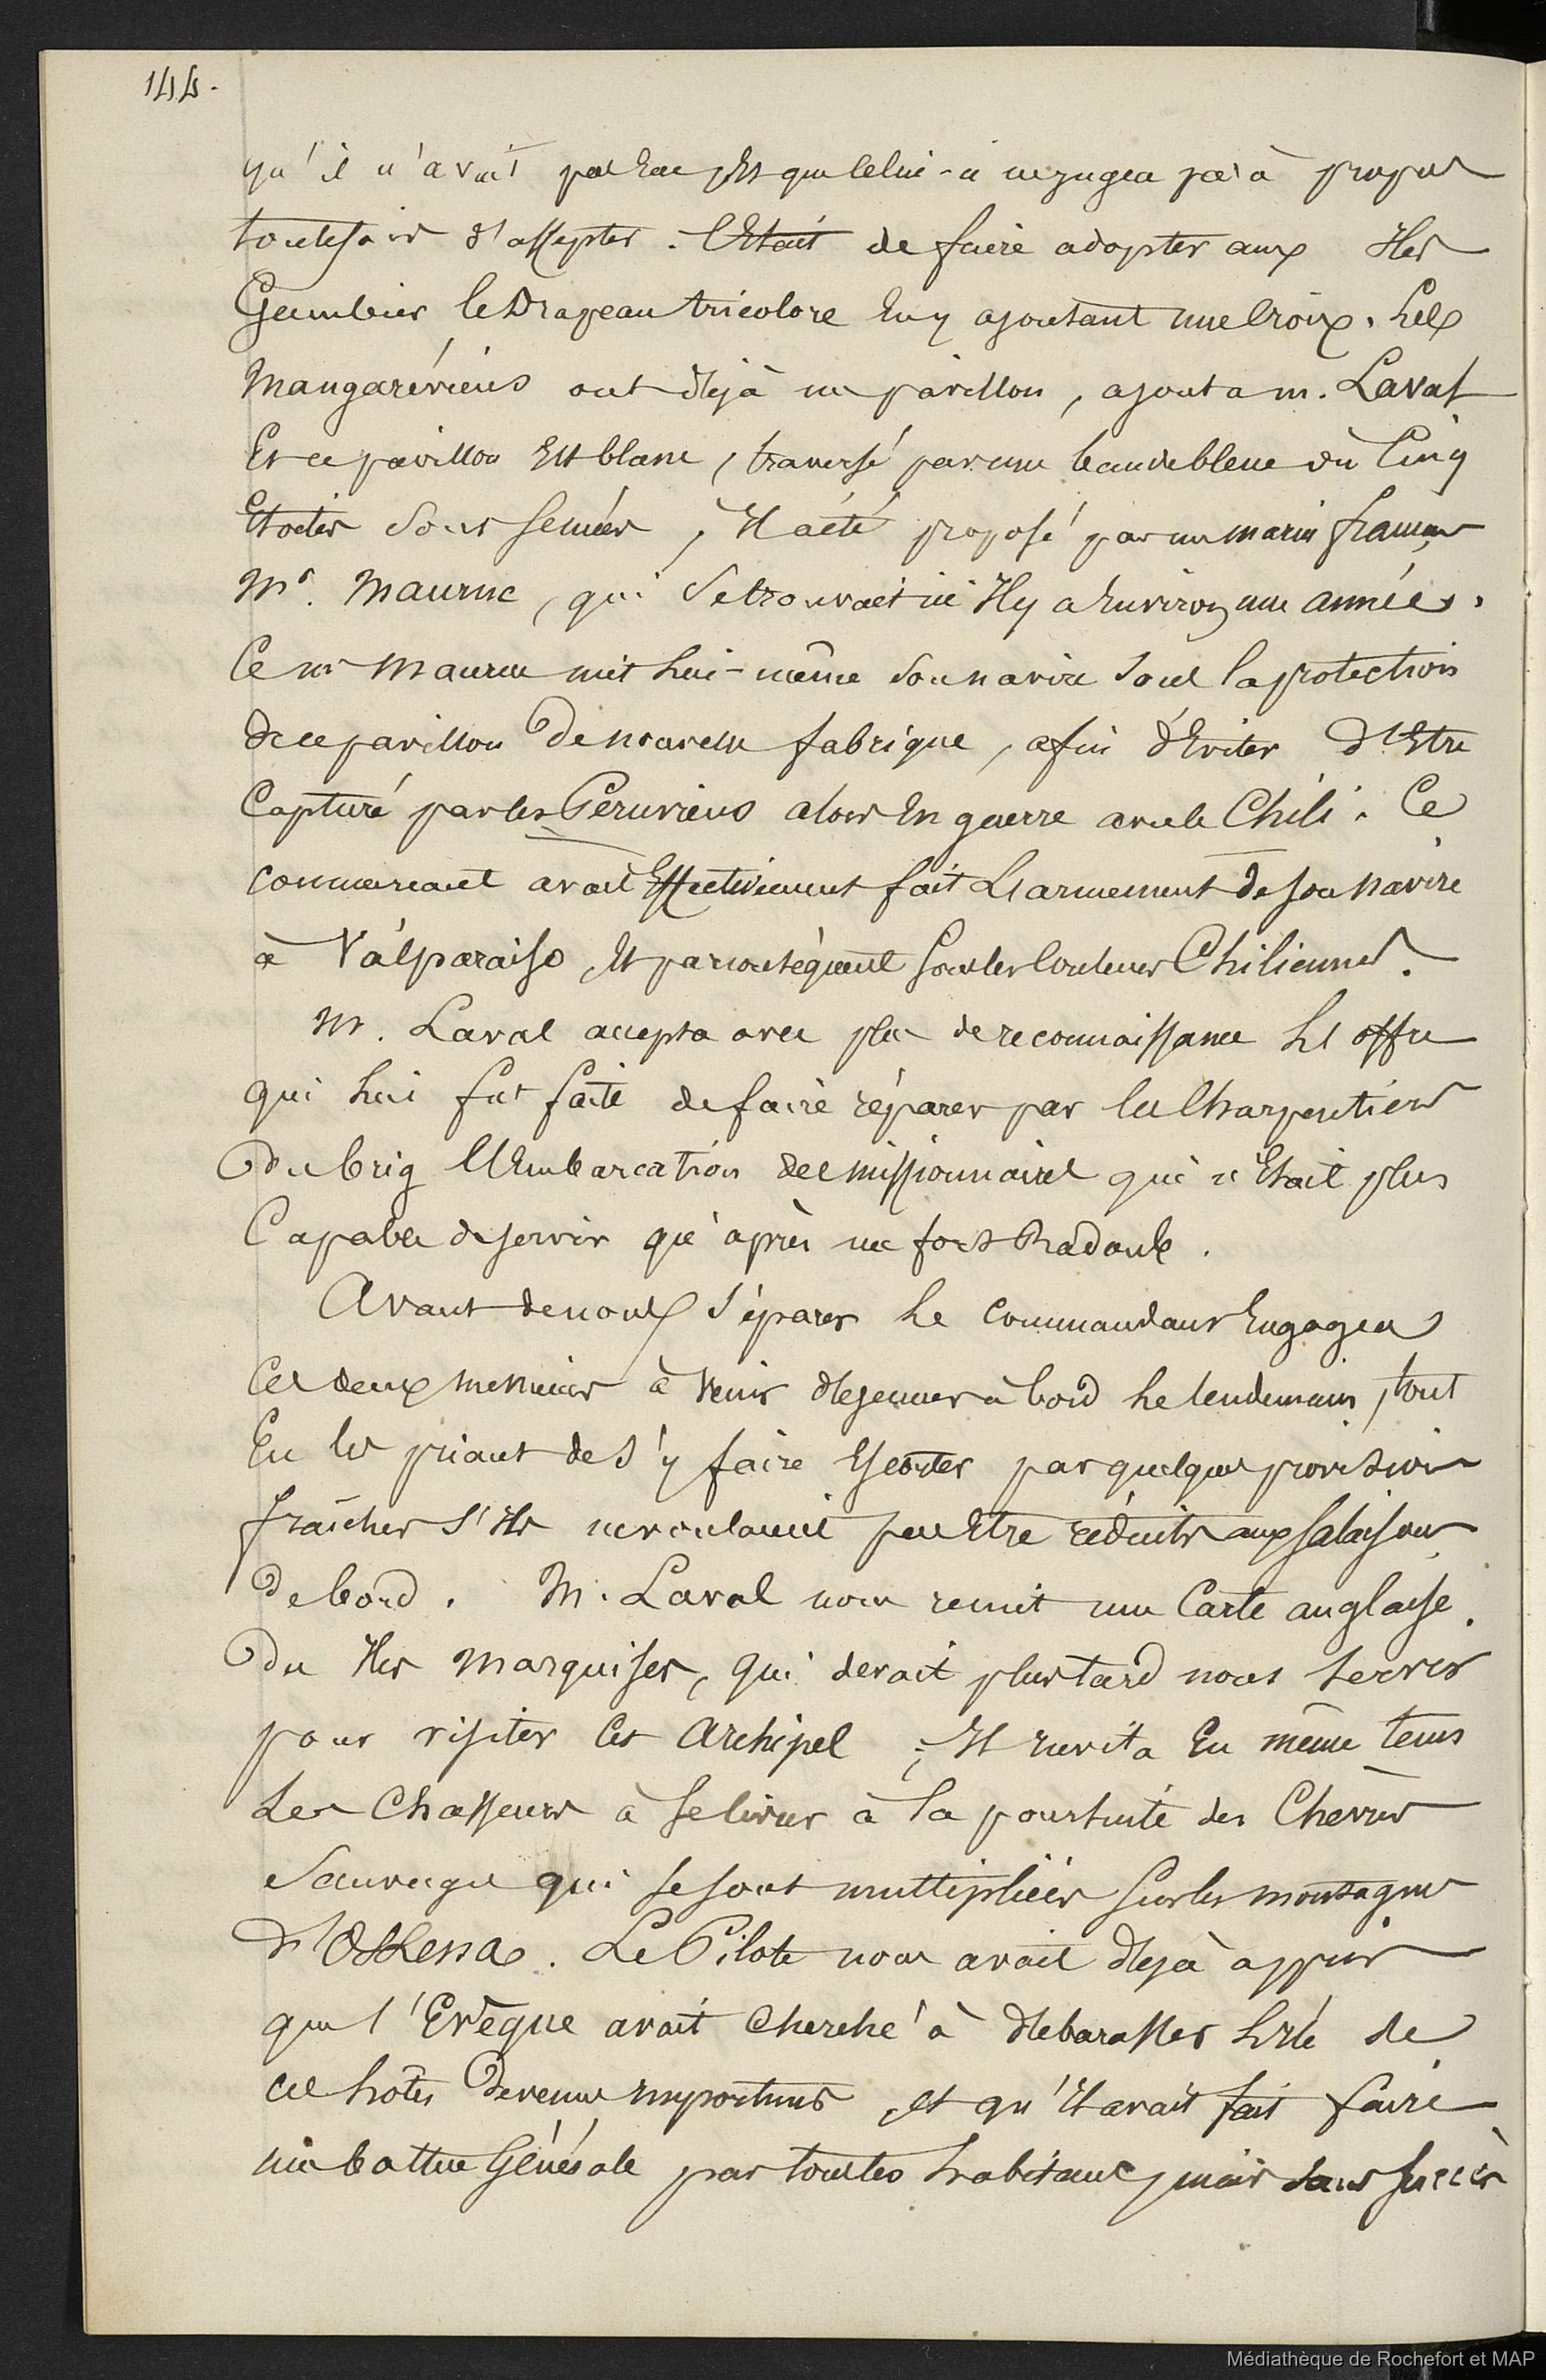 144.
qu'il n'avait pas eue, et que celui-ci ne jugea pas à propos
toutefois d'accepter. C'était de faire adopter aux Iles
Gambier le Drapeau tricolore en y ajoutant une Croix. Les
Mangaréviens ont déjà un pavillon, ajouta m. Laval
Et ce pavillon Est blanc, traversé par une bande bleue où Cinq
Etoiles sont semées, Il a été proposé par un marin français
Mr. Mauruc, qui se trouvait ici Il y a Environ une année.
Ce mr Mauruc mit lui-même son navire sous la protection
de ce pavillon de nouvelle fabrique, afin d'Eviter d'Etre
Capturé par les Péruviens alors En guerre avec le Chili. Ce
commerçant avait Effectivement fait L'armement de son navire
à Valparaiso, Et par conséquent sous les Couleurs Chiliennes.
M. Laval accepta avec de reconnaissance L'offre
qui lui fut faite de faire réparer par les Charpentiers
Du brig L'Embarcation des missionnaires qui n'Etait plus
Capable de servir qu'après un fort Radoub.
Avant de nous séparer Le Commandant Engagea
Ces deux messieurs à venir déjeuner à bord le lendemain, tout
En les priant de s'y faire Escorter par quelques provisions
fraîches s'Ils ne voulaient pas Etre réduits aux salaisons
De bord. M. Laval nous remit une Carte anglaise
Des Iles Marquises, qui devait plus tard nous servir
pour visiter Cet Archipel ; Il invita En même tems
Les Chasseurs à se livrer à la poursuite des Chèvres
Sauvages qui se sont multipliées sur les montagnes
d'Okena. Le Pilote nous avait déjà appris
que l'Evèque avait Cherché à débarasser L'île de
ces hôtes devenus importuns, et qu'Il avait fait faire
une battue Générale par tous les habitans, mais sans succès